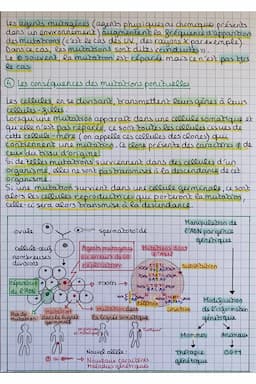 Les agents mutagènes (agents physiques ou chimiques présents
dans un environnement) augmentent la fréquence d'apparition
des mutations (c'est le cas des UV, des rayons X par exemple).
Dans ce cas, les mutations sont dites « induites ».
Le + souvent, la mutation est réparée mais ce n'est pas tjrs
le cas.
④ Les conséquences des mutations ponctuelles
Les cellules, en se divisant, transmettent leurs gènes à leurs
cellules-filles.
Lorsqu'une mutation apparaît dans une cellule somatique et
qu'elle n'est pas réparée, ce sont toutes les cellules issues de
cette cellule-mère (on appelle ces cellules des clones) qui
contiennent une mutation. Ce clone présente des caractères ≠ de
ceux du tissu d'origine.
Si de telles mutations surviennent dans des cellules d'un
organisme, elles ne sont pas transmises à la descendance de cet
organisme.
Si une mutation survient dans une cellule germinale, ce sont
alors les cellules reproductrices qui porteront la mutation
celle-ci sera alors transmise à la descendance.
ovule
spermatozoïde
Manipulation de
l'ADN par génie
génétique
cellule aux
nombreuses
divisions
Agents mutagènes
ou erreurs de
réplication
Mutations dans
substitution
Réparation
de l'ADN
Pas de
mutation
mutation
germinale
mutation dans
la cellule somatique
Modification
de l'information
génétique
Nouvelle cellule
Nouveaux caractères
Maladies génétiques
Hommes
Animaux
Thérapie
génétique
OGM